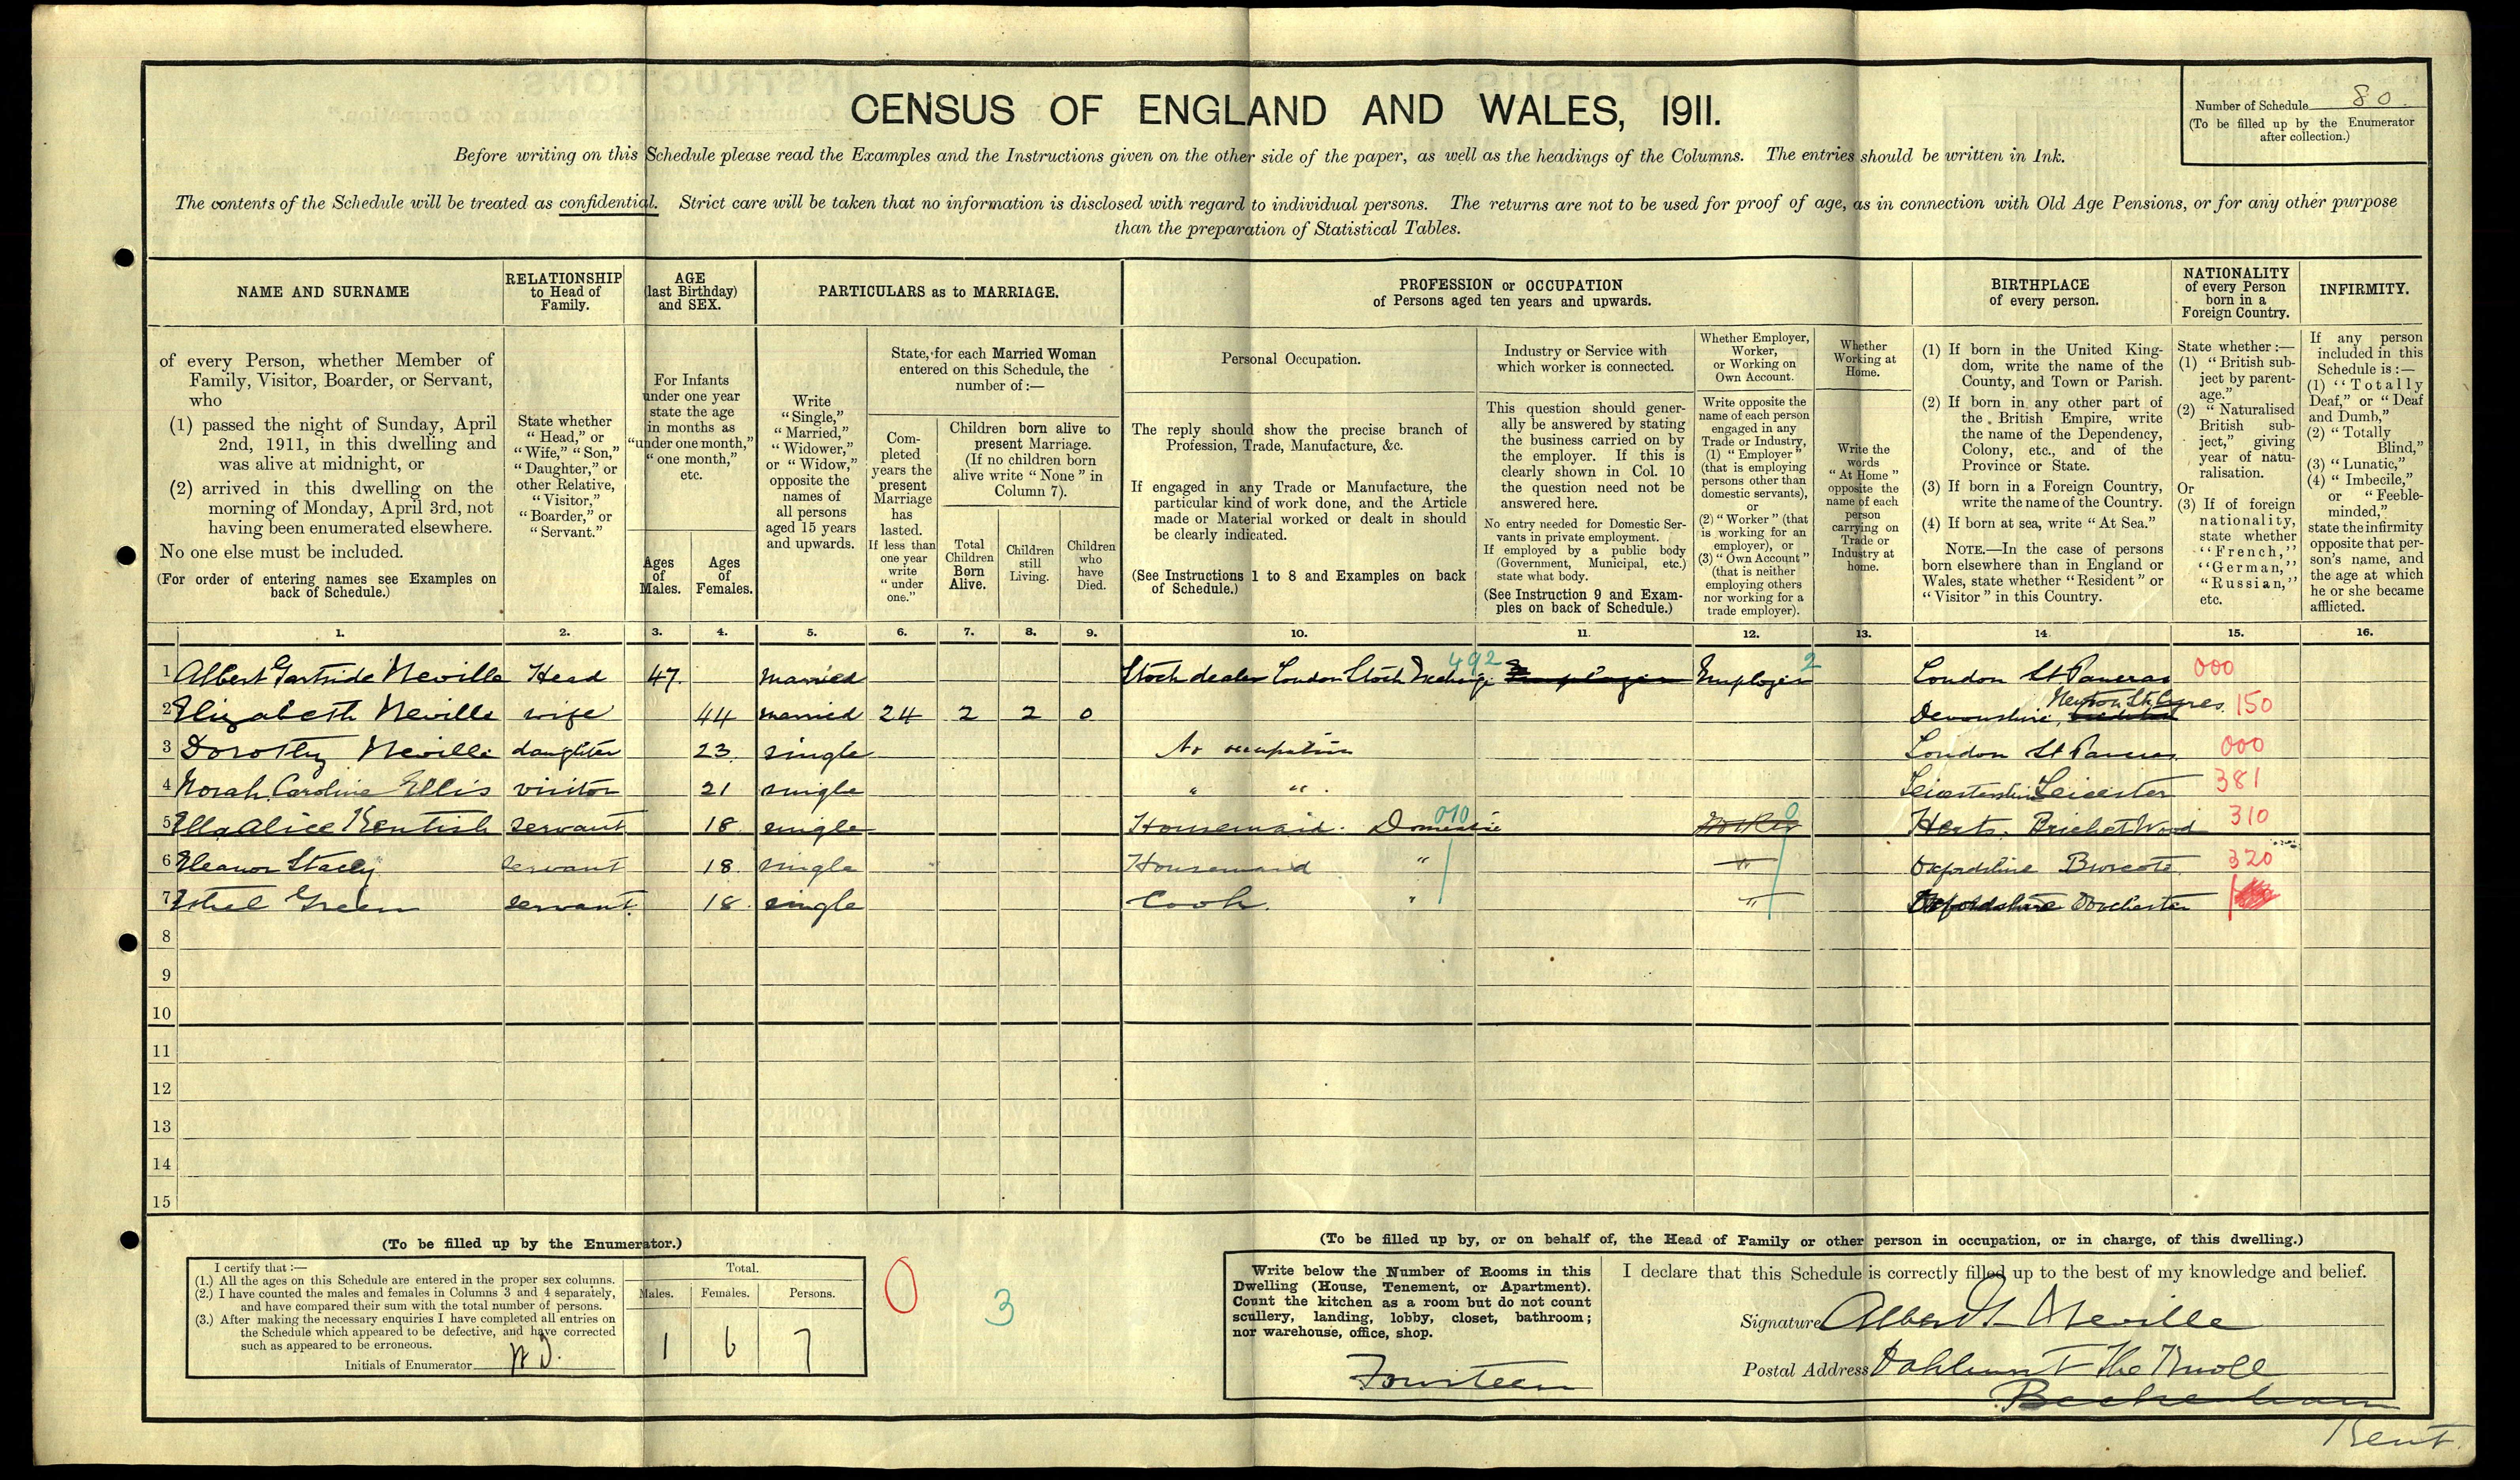 CENSUS OF ENGLAND AND WALES, 1911.
Number of Schedule 80.
(To be filled up by the Enumerator
after collection.)
Before writing on this Schedule please read the Examples and the Instructions given on the other side of the paper, as well as the headings of the Columns. The entries should be written in Ink.
The contents of the Schedule will be treated as confidential. Strict care will be taken that no information is disclosed with regard to individual persons. The returns are not to be used for proof of age, as in connection with Old Age Pensions, or for any other purpose
than the preparation of Statistical Tables.
NAME AND SURNAME
of every Person, whether Member of
Family, Visitor, Boarder, or Servant,
who
(1) passed the night of Sunday, April
2nd, 1911, in this dwelling and
was alive at midnight, or
(2) arrived in this dwelling on the
morning of Monday, April 3rd, not
having been enumerated elsewhere.
No one else must be included.
(For order of entering names see Examples on
back of Schedule.)
RELATIONSHIP
to Head of
Family.
State whether
"Head," or
"Wife," "Son,"
"Daughter," or
other Relative,
"Visitor,"
"Boarder," or
"Servant."
AGE
(last Birthday)
and SEX.
For Infants
under one year
state the age
in months as
"under one month,"
"one month,"
etc.
Ages
of
Males.
Ages
of
Females.
PARTICULARS as to MARRIAGE.
Write
"Single,"
"Married,"
"Widower,"
or "Widow,"
opposite the
names of
all persons
aged 15 years
and upwards.
State, for each Married Woman
entered on this Schedule, the
number of:—
Com-
pleted
years the
present
Marriage
has
lasted.
If less than
one year
write
"under
one."
Children born alive to
present Marriage.
(If no children born
alive write "None" in
Column 7).
Total
Children
Born
Alive.
Children
still
Living.
Children
who
have
Died.
PROFESSION or OCCUPATION
of Persons aged ten years and upwards.
Personal Occupation.
The reply should show the precise branch of
Profession, Trade, Manufacture, &c.
If engaged in any Trade or Manufacture, the
particular kind of work done, and the Article
made or Material worked or dealt in should
be clearly indicated.
(See Instructions 1 to 8 and Examples on back
of Schedule.)
Industry or Service with
which worker is connected.
This question should gener-
ally be answered by stating
the business carried on by
the employer. If this is
clearly shown in Col. 10
the question need not be
answered here.
No entry needed for Domestic Ser-
vants in private employment.
If employed by a public body
(Government, Municipal, etc.)
state what body.
(See Instruction 9 and Exam-
ples on back of Schedule.)
Whether Employer,
Worker,
or Working on
Own Account.
Write opposite the
name of each person
engaged in any
Trade or Industry,
(1) "Employer"
(that is employing
persons other than
domestic servants),
or
(2) "Worker" (that
is working for an
employer), or
(3) "Own Account"
(that is neither
employing others
nor working for a
trade employer).
Whether
Working at
Home.
Write the
words
"At Home"
opposite the
name of each
person
carrying on
Trade or
Industry at
home.
BIRTHPLACE
of every person.
(1) If born in the United King-
dom, write the name of the
County, and Town or Parish.
(2) If born in any other part of
the British Empire, write
the name of the Dependency,
Colony, etc., and of the
Province or State.
(3) If born in a Foreign Country,
write the name of the Country.
(4) If born at sea, write "At Sea."
NOTE.—In the case of persons
born elsewhere than in England or
Wales, state whether "Resident" or
"Visitor" in this Country.
NATIONALITY
of every Person
born in a
Foreign Country.
State whether:—
(1) "British sub-
ject by parent-
age."
(2) "Naturalised
British sub-
ject," giving
year of natu-
ralisation.
Or
(3) If of foreign
nationality,
state whether
"French,"
"German,"
"Russian,"
etc.
INFIRMITY.
If any person
included in this
Schedule is:—
(1) "Totally
Deaf," or "Deaf
and Dumb,"
(2) "Totally
Blind,"
(3) "Lunatic,"
(4) "Imbecile,"
or "Feeble-
minded,"
state the infirmity
opposite that per-
son's name, and
the age at which
he or she became
afflicted.
1. 2. 3. 4. 5. 6. 7. 8. 9. 10. 11. 12. 13. 14. 15. 16.
492 2
1 Albert Gartside Neville Head 47. Married Stock dealer London Stock Exchange Employer Employer London St Pancras 000
Newton St Cyres
2 Elizabeth Neville wife 44 married 24 2 2 0 Devonshire, 150
3 Dorothy Neville daughter 23. single No occupation London St Pancras 000
4 Norah Caroline Ellis visitor 21 single " " . Leicestershire Leicester 381
010 0
5 Ella Alice Kentish servant 18 single Housemaid. Domestic Worker Herts. Bricket Wood 310
6 Eleanor Stacey servant 18. single Housemaid " " Oxfordshire 320
7 Ethel Green servant. 18. single Cook. " " Oxfordshire Dorchester
8
9
10
11
12
13
14
15
(To be filled up by the Enumerator.)
I certify that:—
(1.) All the ages on this Schedule are entered in the proper sex columns.
(2.) I have counted the males and females in Columns 3 and 4 separately,
and have compared their sum with the total number of persons.
(3.) After making the necessary enquiries I have completed all entries on
the Schedule which appeared to be defective, and have corrected
such as appeared to be erroneous.
Initials of Enumerator
Total.
Males. Females. Persons.
1 6 7
0
3
(To be filled up by, or on behalf of, the Head of Family or other person in occupation, or in charge, of this dwelling.)
Write below the Number of Rooms in this
Dwelling (House, Tenement, or Apartment).
Count the kitchen as a room but do not count
scullery, landing, lobby, closet, bathroom;
nor warehouse, office, shop.
Fourteen
I declare that this Schedule is correctly filled up to the best of my knowledge and belief.
Signature Albert G Neville
Postal Address Oakhurst The Knoll
Beckenham
Kent.